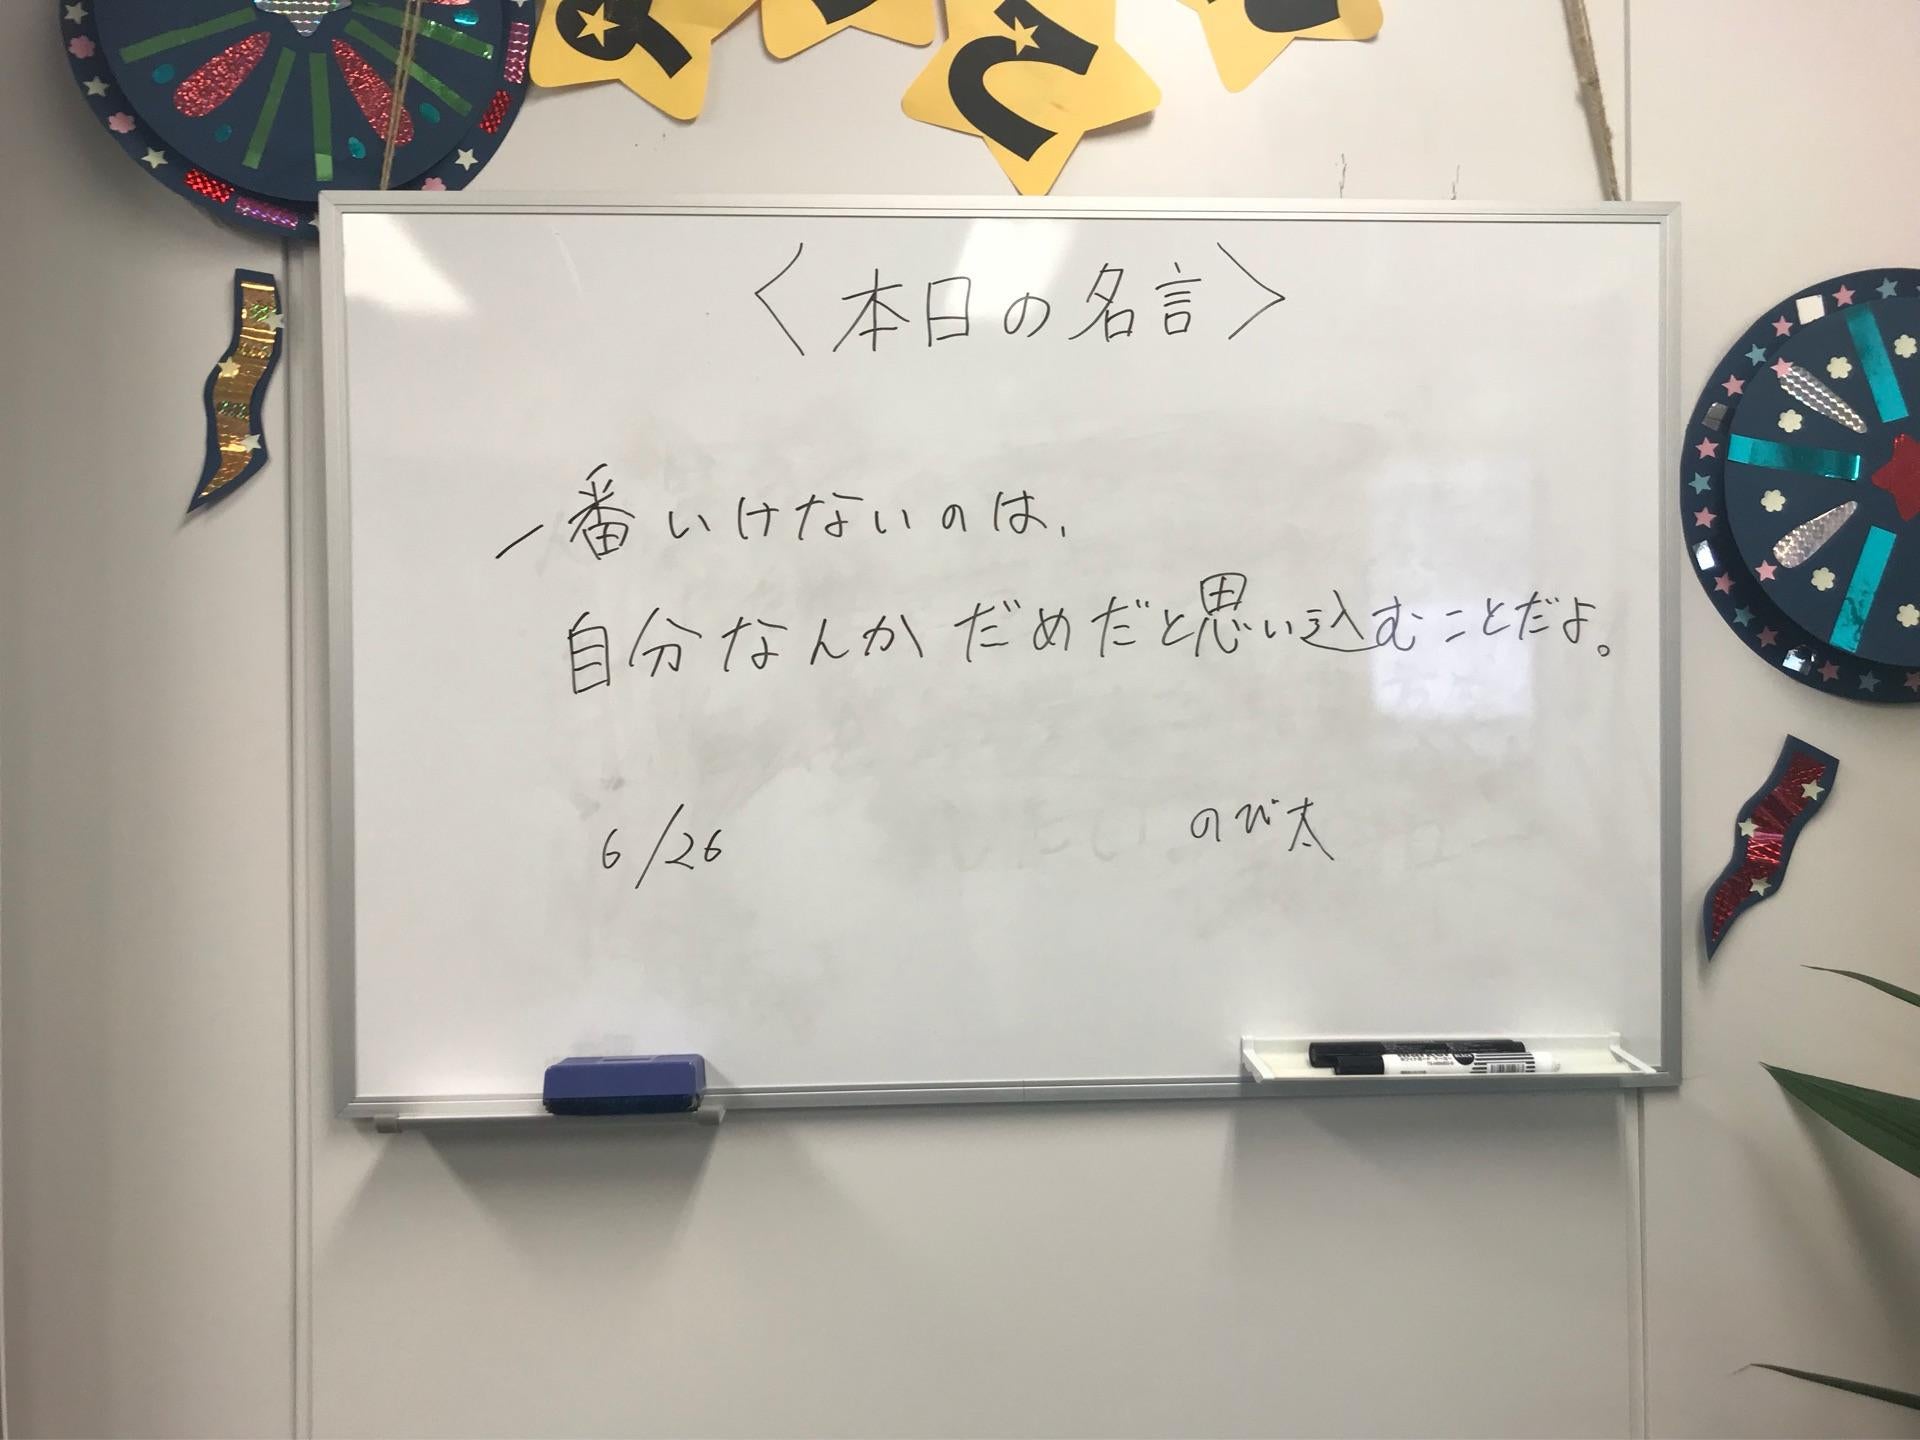 〈本日の名言〉
一番いけないのは、
自分なんかだめだと思い込むことだよ。
6/26
のび太